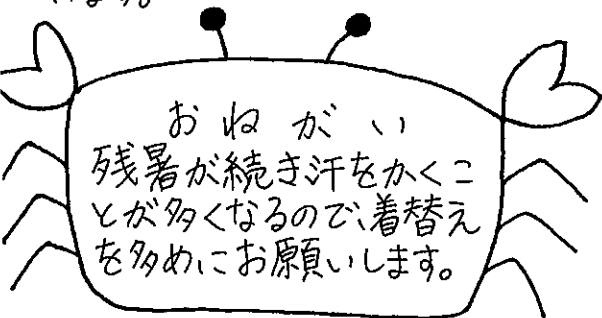 います。
おねがい
残暑が続き汗をかくこ
とが多くなるので、着替え
を多めにお願いします。